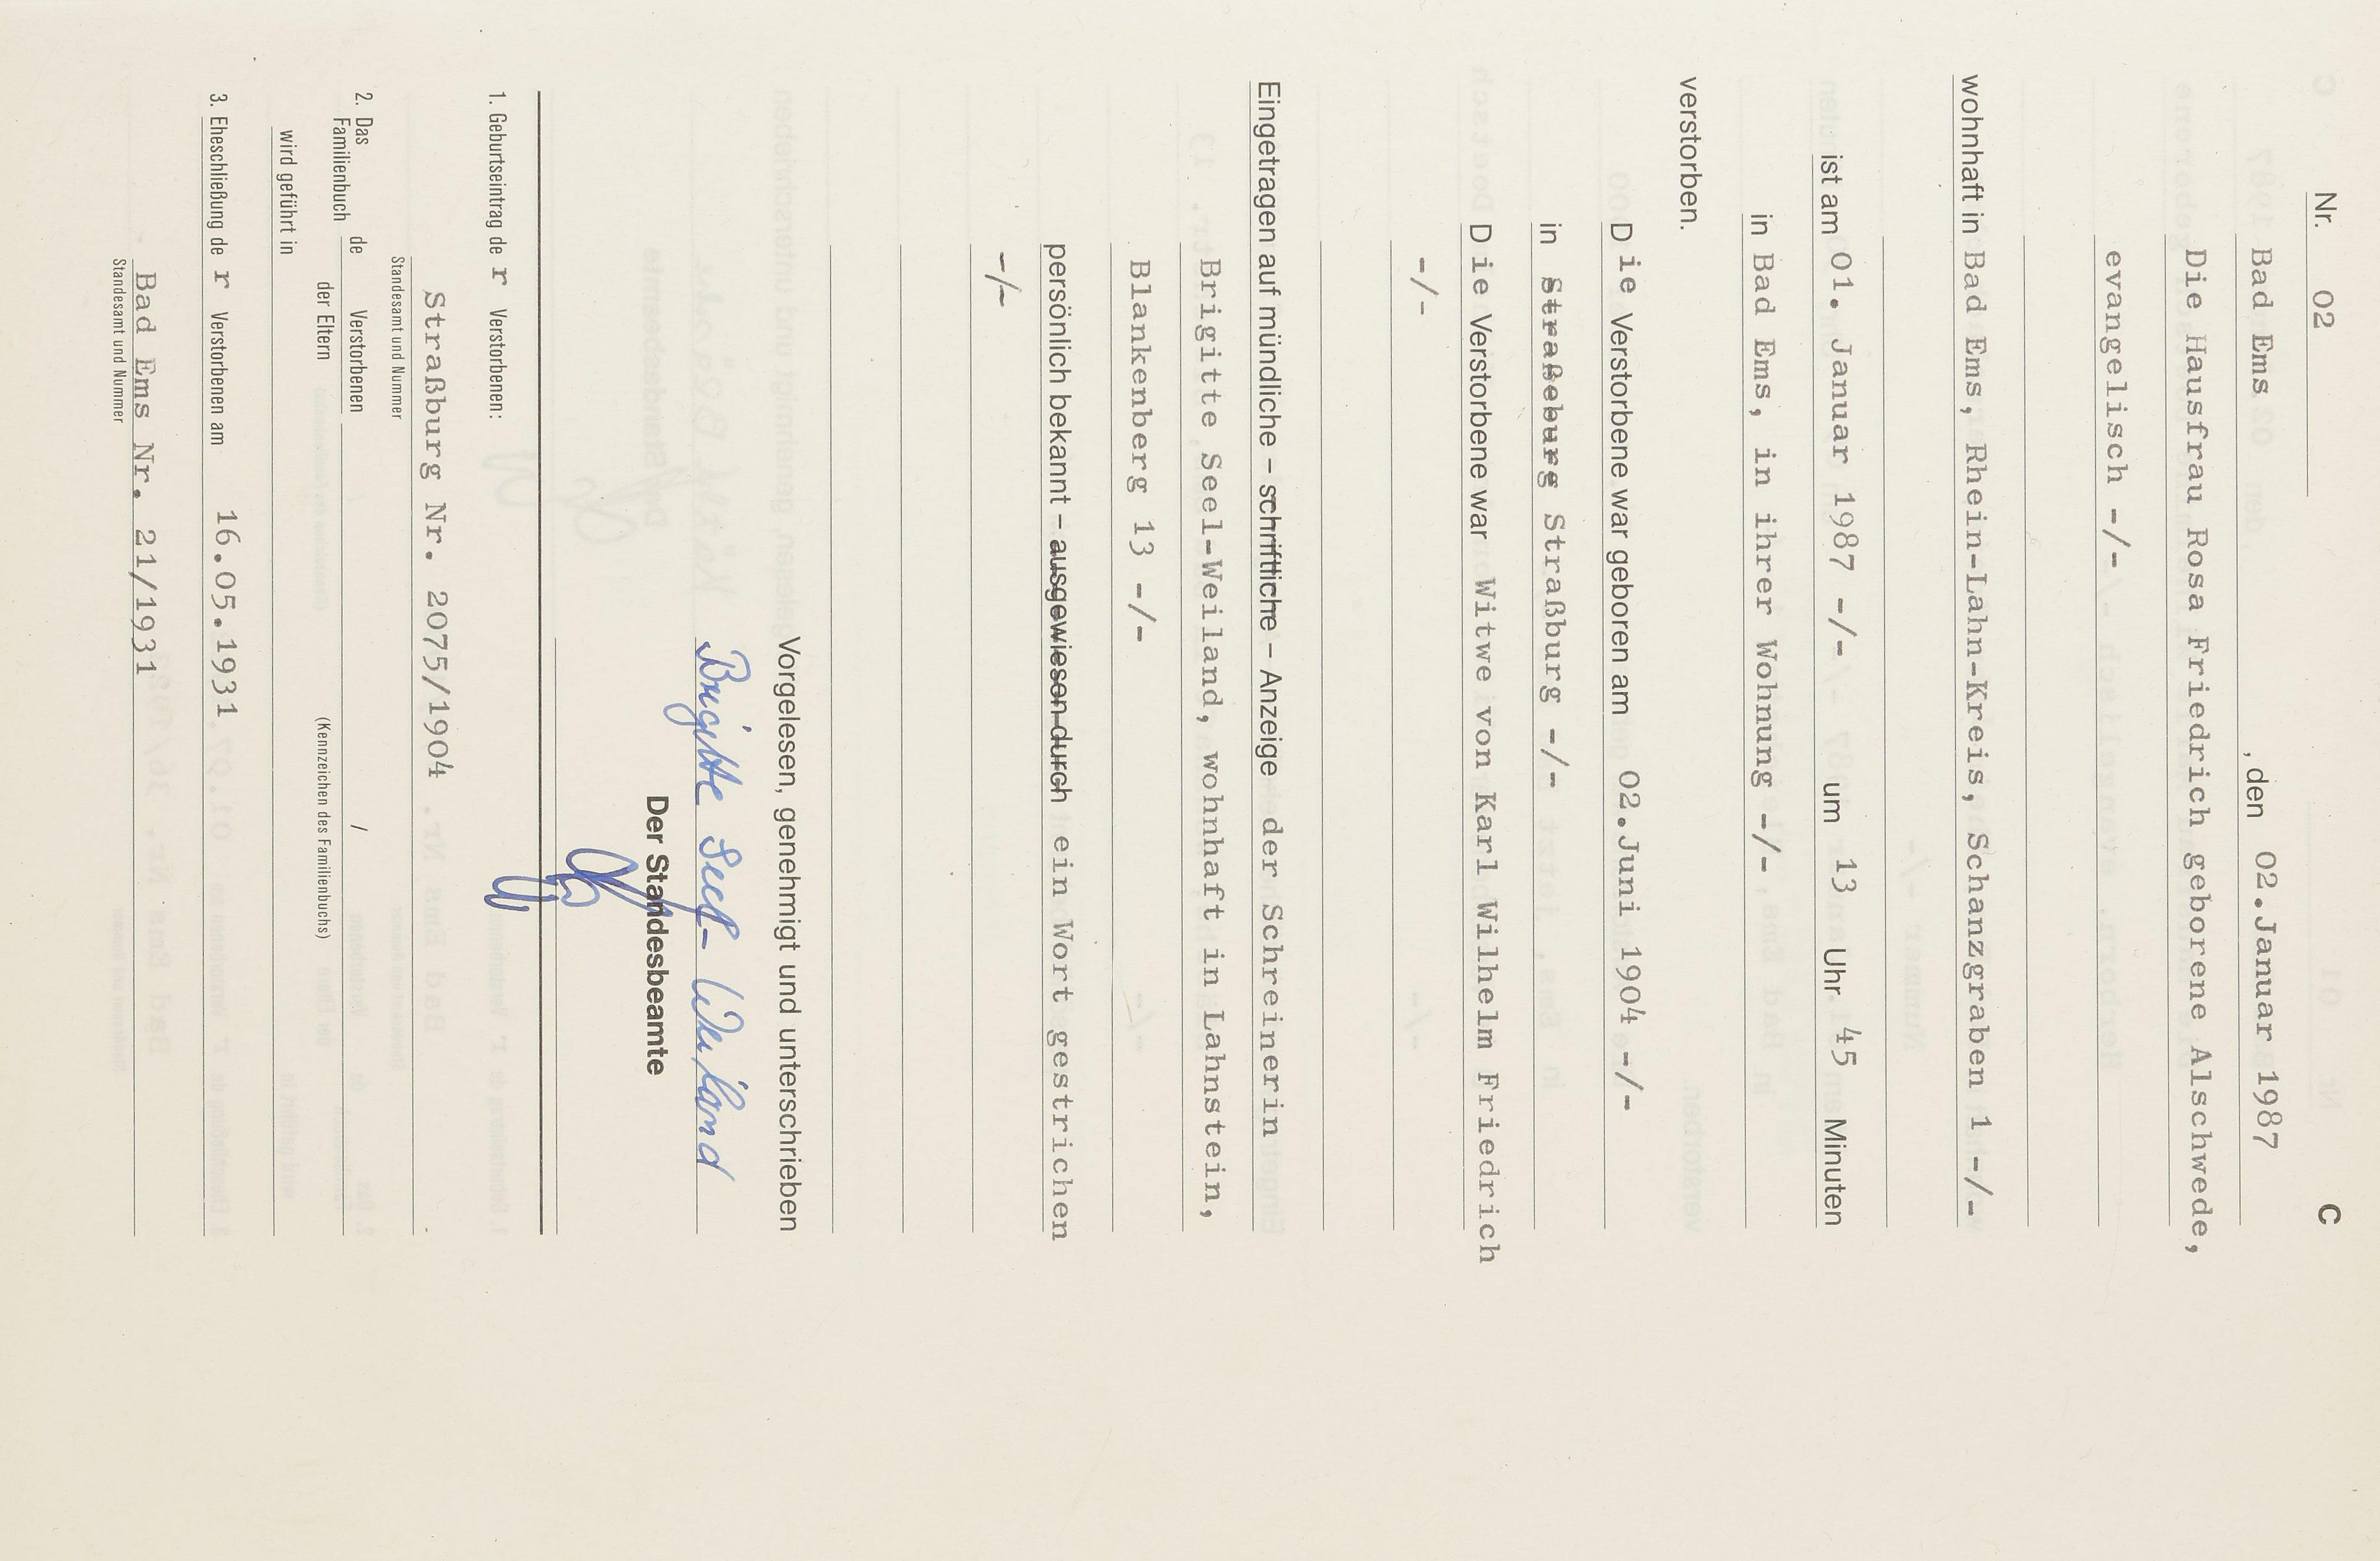 Nr. 02 C
Bad Ems, den 02.Januar 1987
Die Hausfrau Rosa Friedrich geborene Alschwede,
evangelisch -/-
wohnhaft in Bad Ems, Rhein-Lahn-Kreis, Schanzgraben 1 -/-
ist am 01. Januar 1987 -/- um 13 Uhr 45 Minuten
in Bad Ems, in ihrer Wohnung -/-
verstorben.
Die Verstorbene war geboren am 02.Juni 1904 -/-
in Straßeburg Straßburg -/-
Die Verstorbene war Witwe von Karl Wilhelm Friedrich
-/-
Eingetragen auf mündliche – schriftliche – Anzeige der Schreinerin
Brigitte Seel-Weiland, wohnhaft in Lahnstein,
Blankenberg 13 -/-
persönlich bekannt – ausgewiesen durch ein Wort gestrichen
-/-
Vorgelesen, genehmigt und unterschrieben
Brigitte Seel-Weiland
Der Standesbeamte
1. Geburtseintrag de r Verstorbenen:
Straßburg Nr. 2075/1904
Standesamt und Nummer
2. Das Familienbuch de Verstorbenen /
der Eltern (Kennzeichen des Familienbuchs)
wird geführt in
3. Eheschließung de r Verstorbenen am 16.05.1931
Bad Ems Nr. 21/1931
Standesamt und Nummer